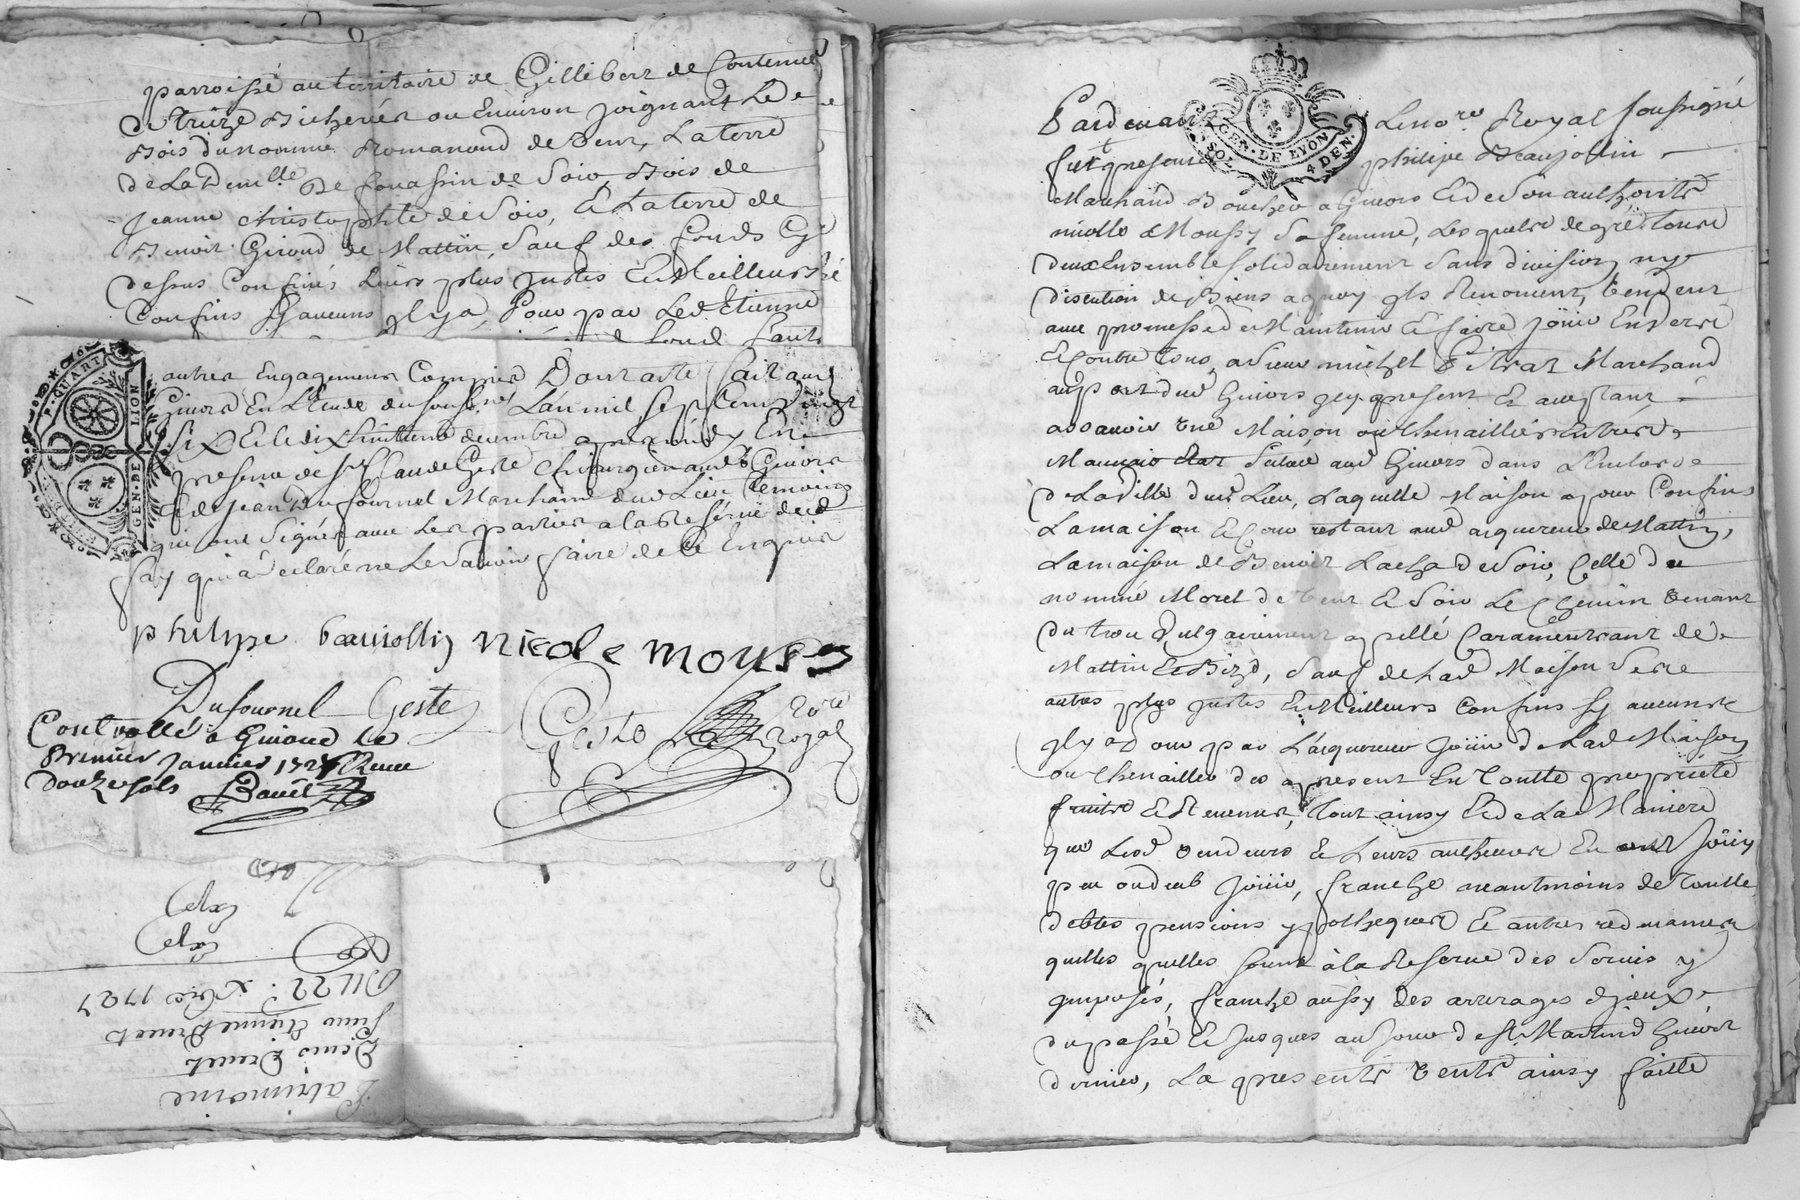 parroisse au territoire de Gillibert de Contenue
de treize Bicherées ou Environ joignant Le
Bois du nommé Romanand de Vent, La terre
de La Demlle De fouassin de Soir, Bois de
Jeanne Christophle de Soir, & La terre de
Benoit Giroud de Mattin, Sauf des fonds Cy
dessus Confinés Leurs plus justes & Meilleurs
Confins Sy aucuns il y a, Pour par Led Etienne
autres Engagements Compris Dont acte fait aud
Givors En L'Etude du soussigné L'an mil Sept Cents vingt
Six Et le dix huitieme decembre apres midy En
presence de Sr Claude Geste Chirurgien aud Givors
& de jean Dufournel Marchand dud Lieu temoins
qui ont Signés avec Les parties a la Reserve de
qui a declaré ne Le Savoir faire de Ce Enquis
philipe baujollin nicole mousy
Dufournel Geste
Geste
Nore
Royal
Controllé a Givors Le
Premier Janvier 1727 Receu
douze sols
P. QUART
GEN. DE LION
Du 22. xbre 1727
Pour Etienne Drevet
Denis Drevet
Patrimoine
GEN. DE LYON
SOL 4 DEN.
Pardevant Le nore Royal soussigné
fut present philipe Beaujollin
Marchand Boucher a Givors & de Son authorité
nicolle Moussy Sa femme, Lesquels de gré tous
deux Ensemble solidairement Sans division ny
discution de Biens a quoy ils Renoncent, Vendent
avec promesse de Maintenir & faire joüir Envers
& Contre tous, a Sieur michel Pitrat Marchand
aud Givors icy present & acceptant
assavoir Une Maison ou Chenaillier
Mauvais Etat Situé aud Givors dans L'Enclos
de La Ville dud Lieu, Laquelle Maison a pour Confins
La maison & Cour restant aud acquereur de Mattin,
La maison de Benoit Lacha de Soir, Celle du
nommé Morel de Vent & Soir Le Chemin tenant
du trou Vulgairement apellé Caramentrant de
Mattin & Bize, Sauf de Lad Maison Ses
autres plus justes & Meilleurs Confins Sy aucuns
il y a Pour par L'acquereur joüir de Lad Maison
ou Chenaillier des a present En toutte propriété
fruits & Revenus, Tout ainsy & de La Maniere
que Lesd Vendeurs & Leurs autheurs En ont Joüy
peu ou deub joüir, franche neantmoins de toutte
debtes pensions ypotheques & autres redevances
quelles quelles Soient à la Reserve des Servis y
imposés, franche aussy des arrerages d'iceux
du passé & Jusques au Jour de St Martin d'hiver
dernier, La presente Vente ainsy faitte